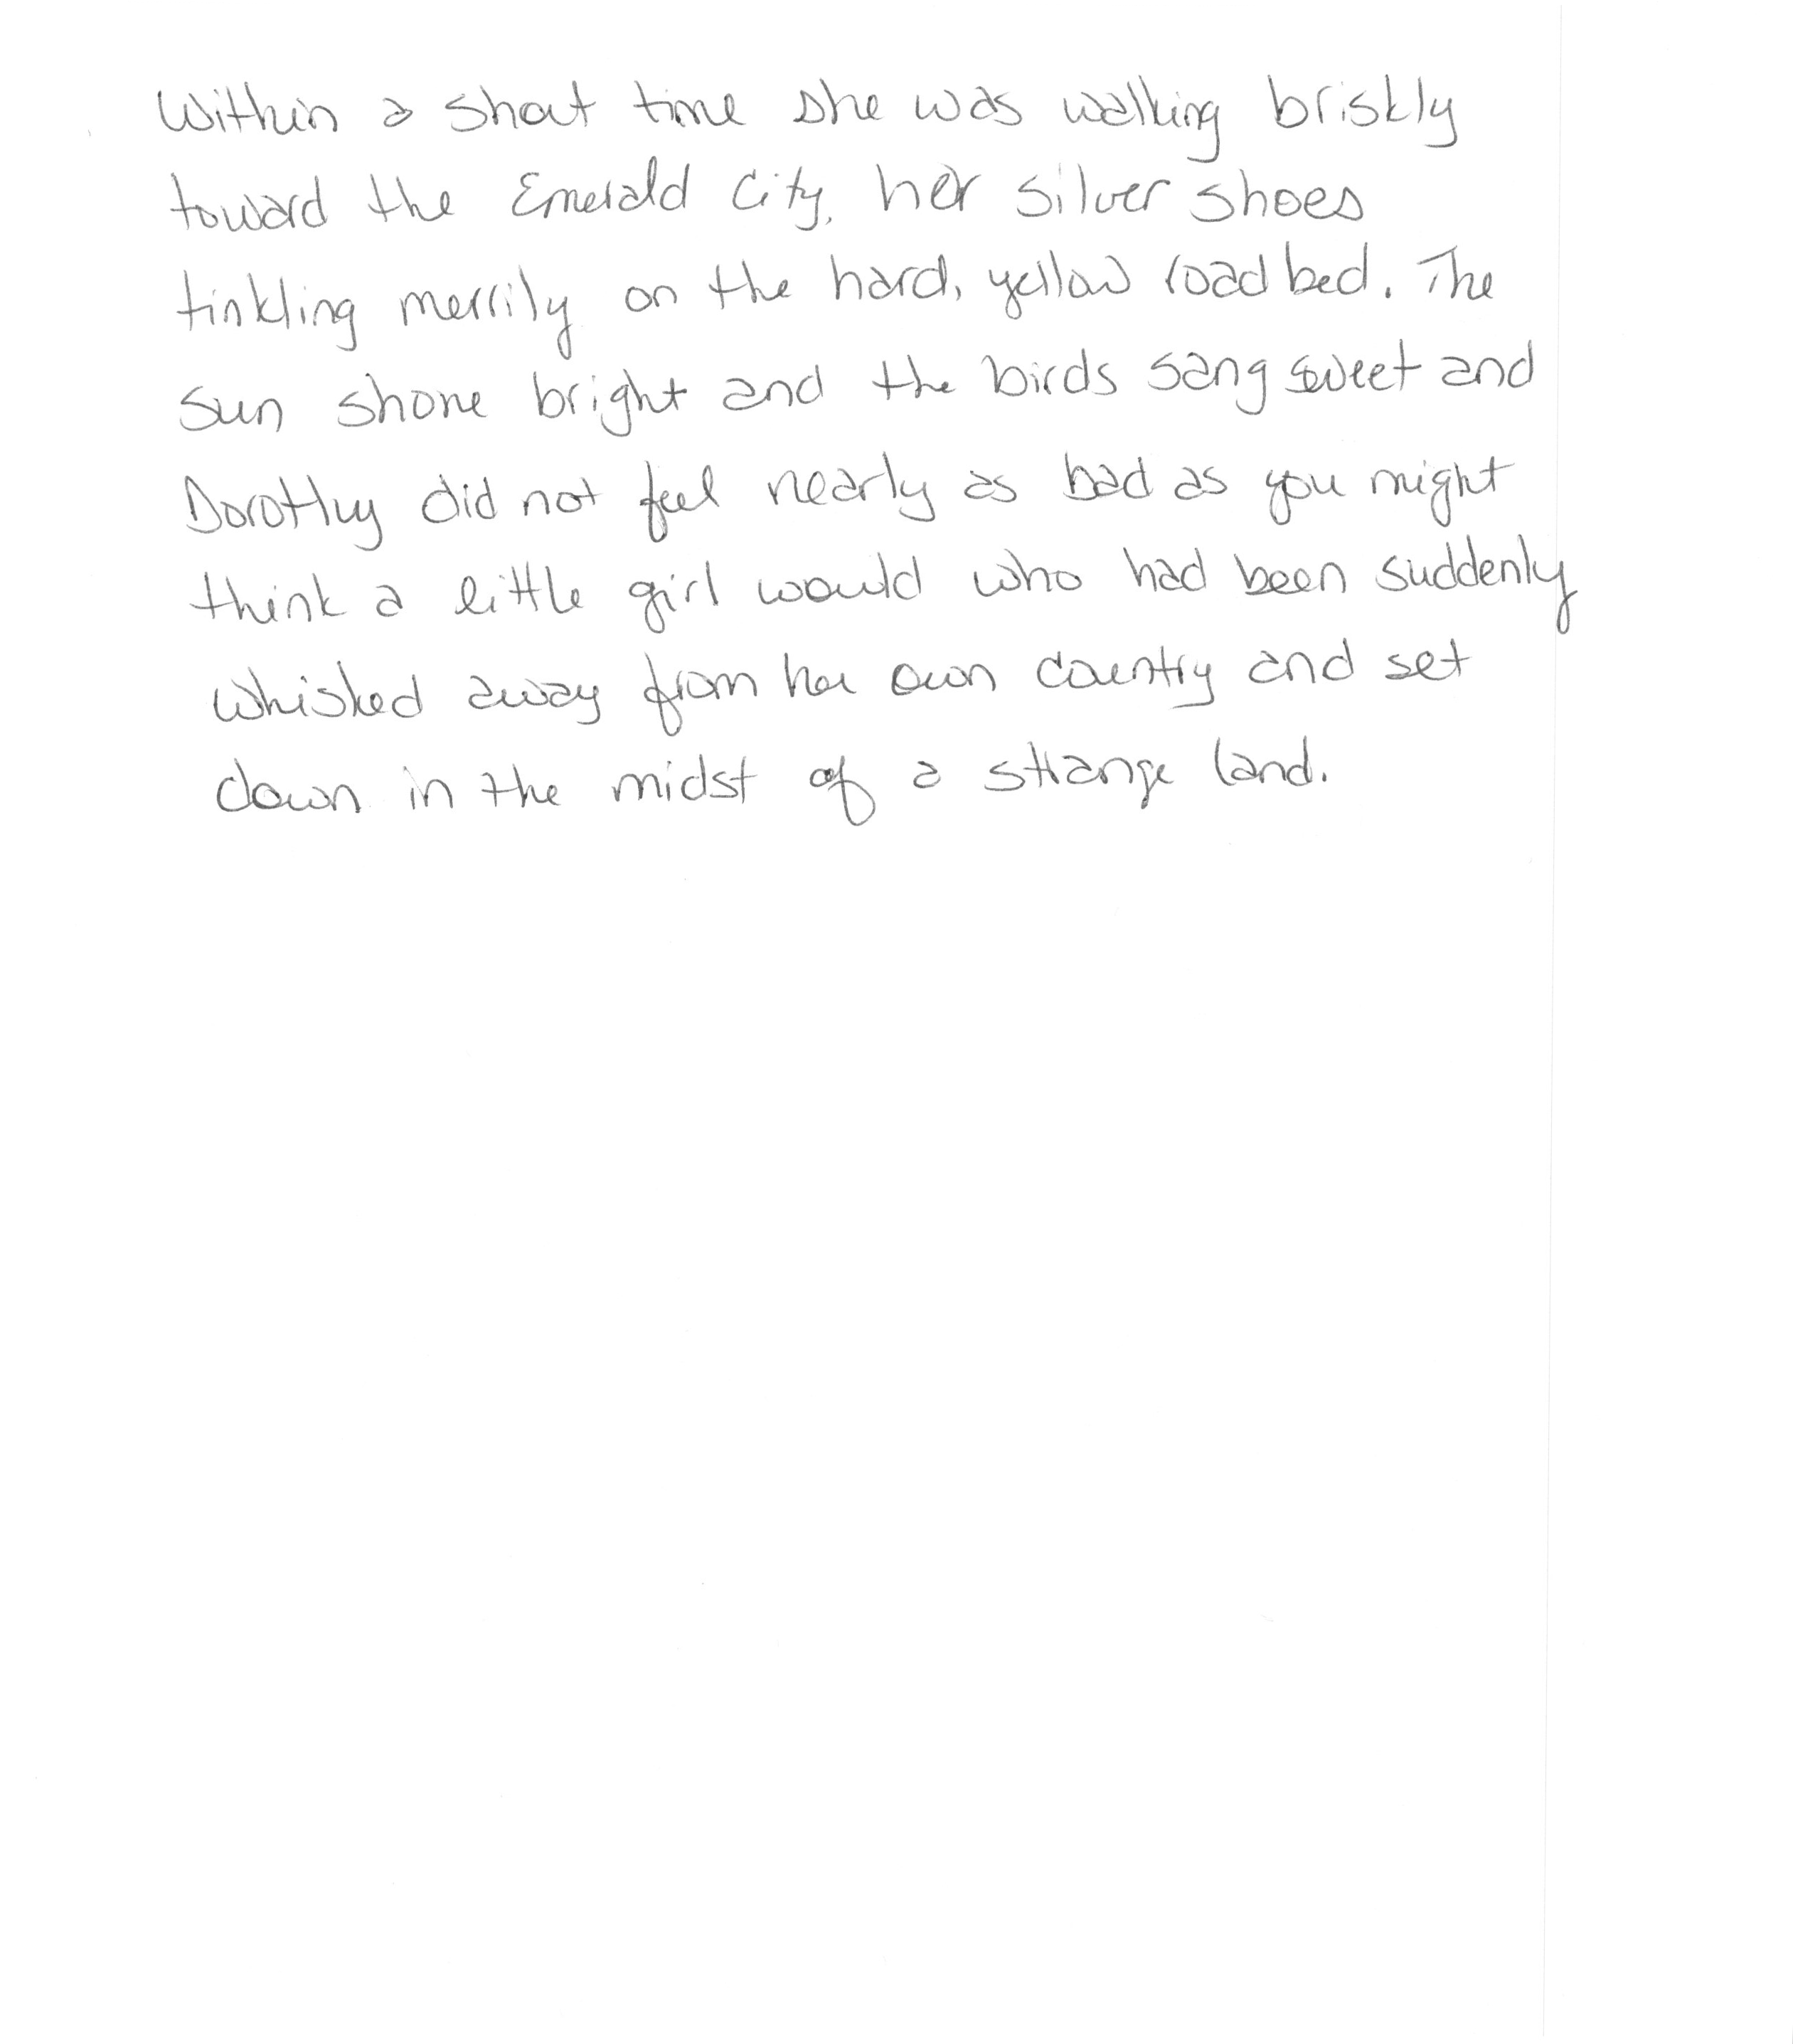 Within a short time she was walking briskly
toward the Emerald City, her silver shoes
tinkling merrily on the hard, yellow road bed. The
sun shone bright and the birds sang sweet and
Dorothy did not feel nearly as bad as you might
think a little girl would who had been suddenly
whisked away from her own country and set
down in the midst of a strange land.